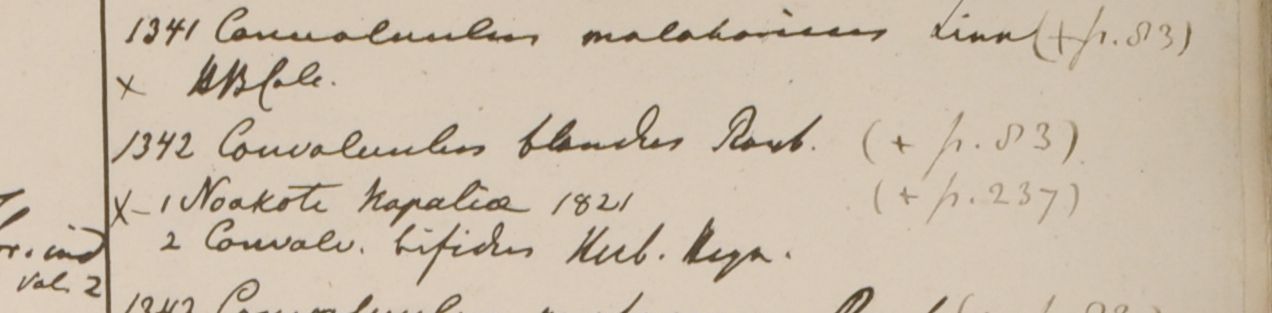 1341 Convolvulus malabaricus Linn (+ p. 83)
x HBCalc.
1342 Convolvulus blandus Roxb. (+ p. 83)
X-1 Noakote Napaliae 1821 (+ p. 237)
2 Convolv. bifidus Herb. Heyn.
r. ind
Vol. 2
1343